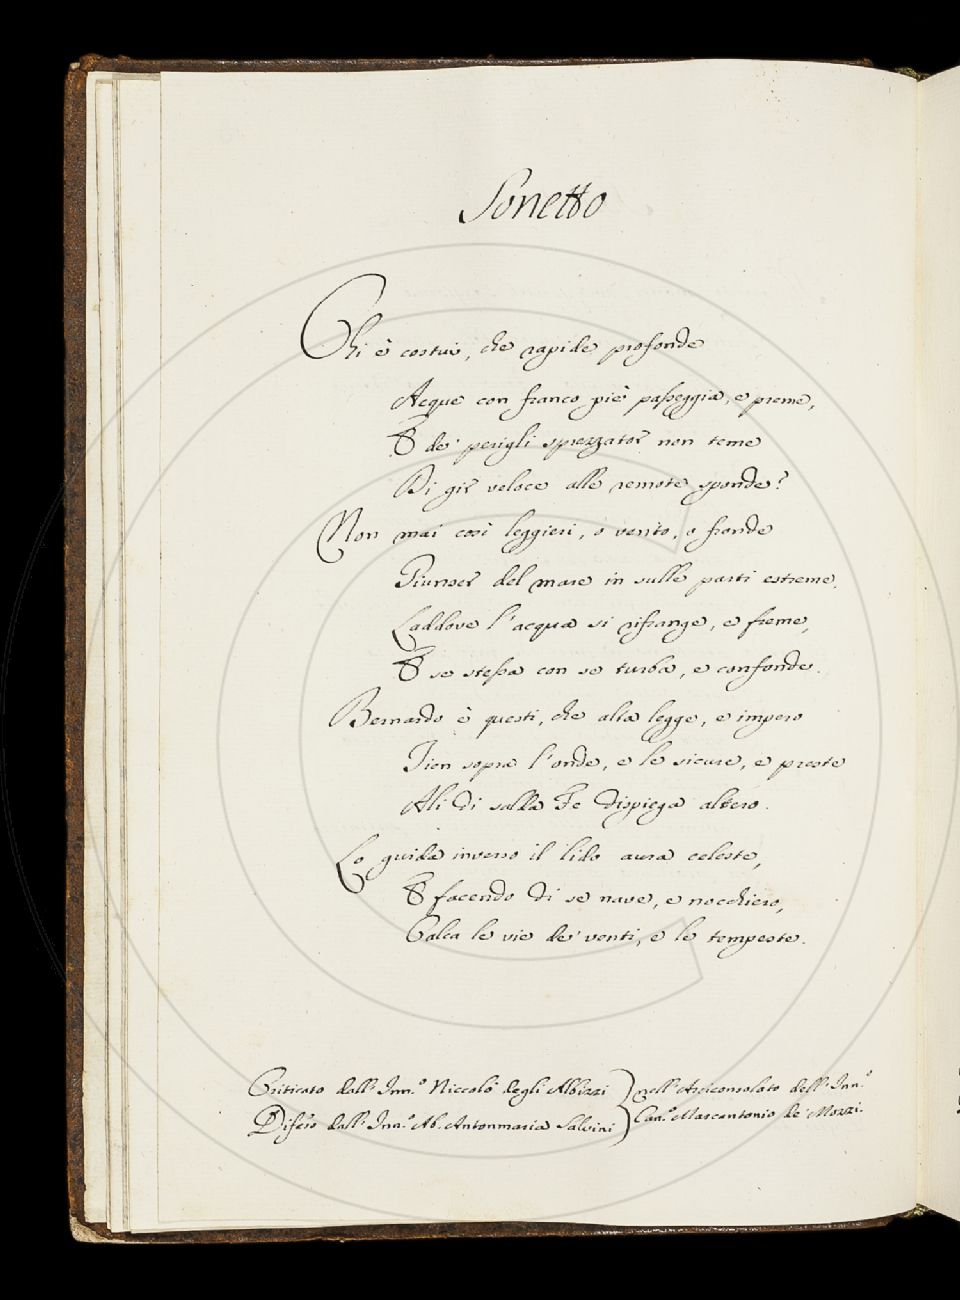 Sonetto
Chi è costui, che rapide profonde
Acque con franco piè passeggia, e preme,
E de' perigli sprezzator non teme
Di gir veloce alle remote sponde?
Non mai così leggieri, o vento, o fronde
Giunser del mare in sulle parti estreme,
Laddove l'acqua si rifrange, e freme,
E se stessa con se turba, e confonde.
Bernardo è questi, che alta legge, e impero
Tien sopra l'onde, e le sicure, e preste
Ali di salda Fe dispiega altero.
Lo guida inverso il lido aura celeste,
E facendo di se nave, e nocchiero,
Calca le vie de' venti, e le tempeste.
Criticato dall' Inn.º Niccolò degli Albizzi } nell' Arciconsolato dell' Inn.º
Difeso dall' Inn.º Ab. Antonmaria Salvini } Can.º Marcantonio de' Mozzi.